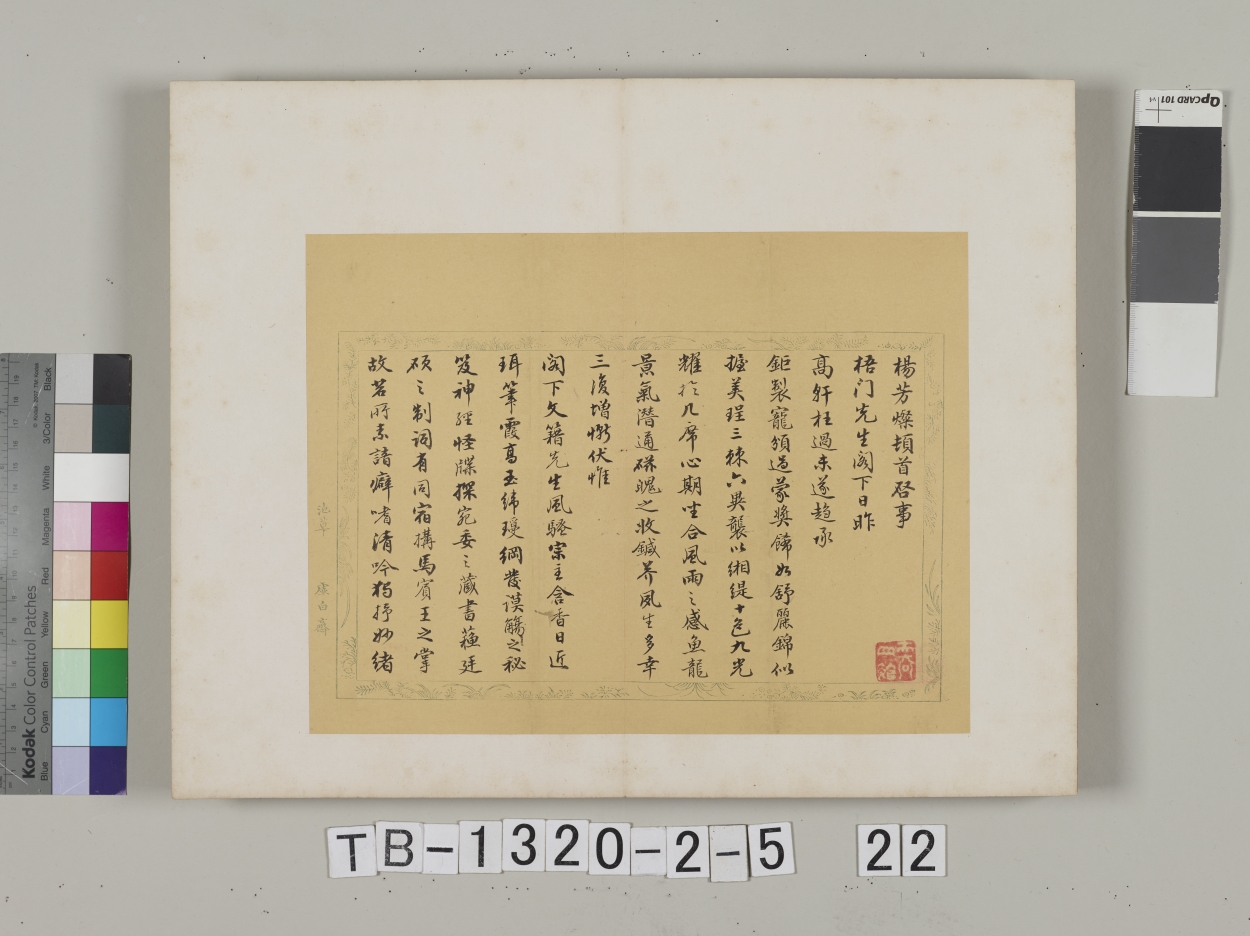 楊芳燦頓首啓事
梧门先生閣下日昨
高軒枉過未遂趍承
鉅製寵頒過蒙奬飾如舒麗錦似
握美珵三棘六異襲以緗緹十色九光
耀扵几席心期唑合風雨之感魚龍
景氣潛通磁魄之收鍼芥夙生多幸
三復增慚伏惟
閣下文籍先生風騷宗主含香日近
珥筆霞高玉緯瓊綱發謨觴之秘
笈神經怪牒探宛委之藏書蘓廷
碩之制詞有同宿搆馬賓王之掌
故若所素諳癖嗜清吟獨抒妙緒
池草
虛白齋
TB-1320-2-5 22
Kodak Color Control Patches
Blue
Cyan
Green
Yellow
Red
Magenta
White
3/Color
Black
QPCARD 101